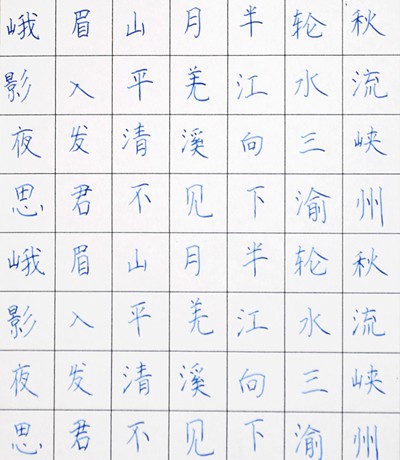 峨眉山月半轮秋
影入平羌江水流
夜发清溪向三峡
思君不见下渝州
峨眉山月半轮秋
影入平羌江水流
夜发清溪向三峡
思君不见下渝州